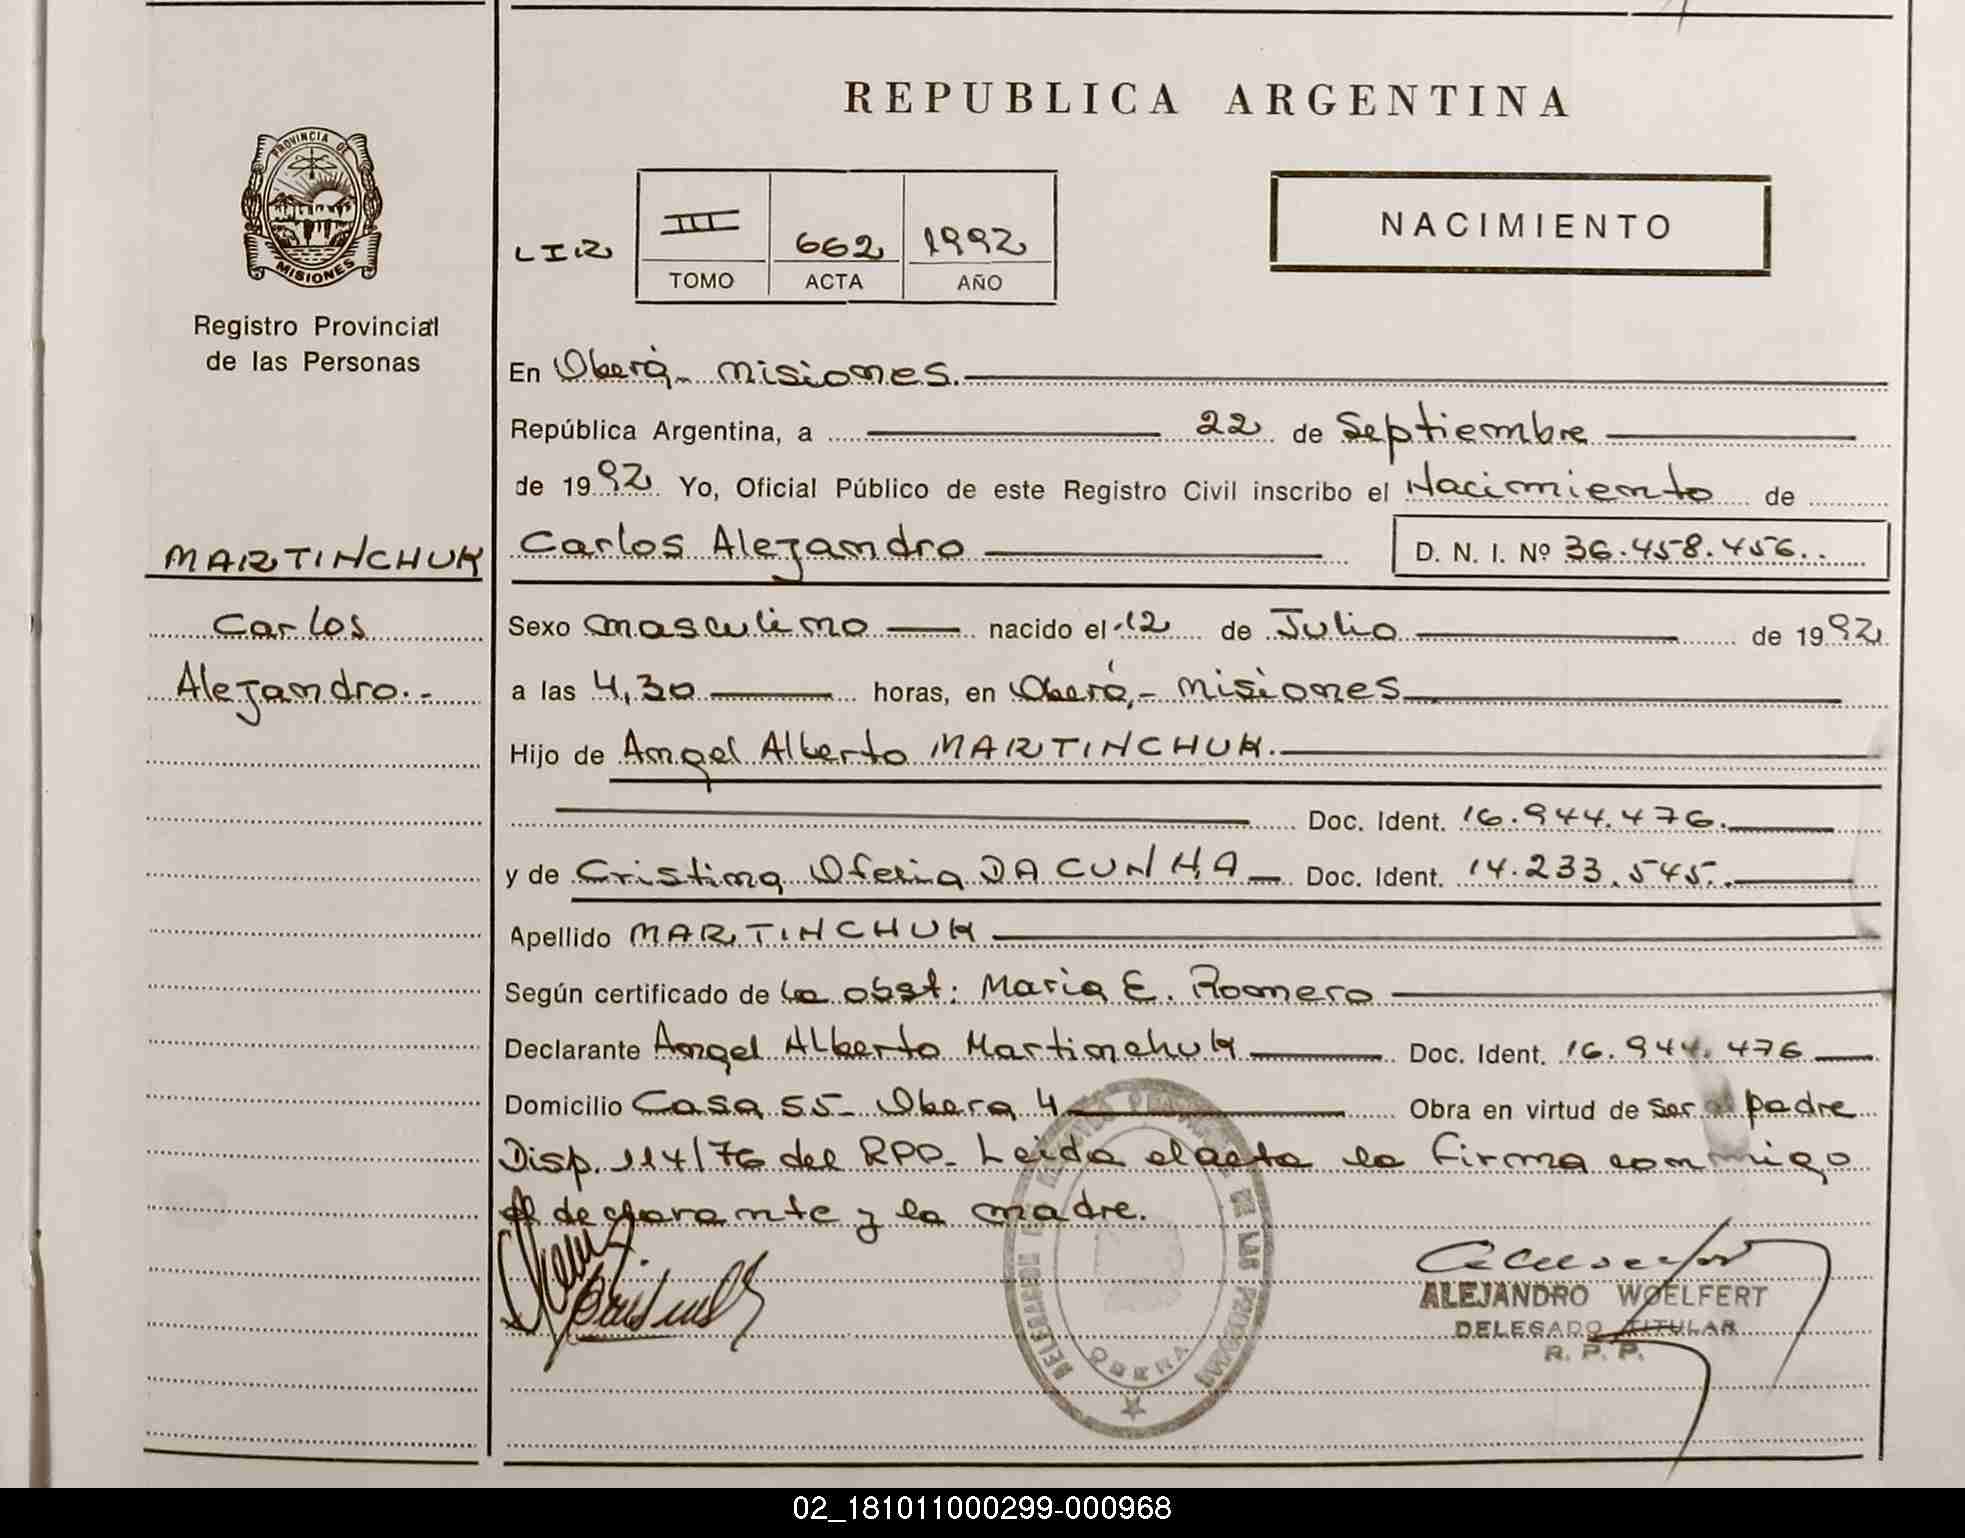 REPUBLICA ARGENTINA
PROVINCIA DE
MISIONES
Registro Provincial
de las Personas
MARTINCHUK
Carlos
Alejandro.-
LIR III 662 1992
TOMO ACTA AÑO
NACIMIENTO
En Oberá - Misiones.
República Argentina, a 22 de Septiembre
de 1992 Yo, Oficial Público de este Registro Civil inscribo el Nacimiento de
Carlos Alejandro D. N. I. Nº 36.458.456..
Sexo masculino nacido el 12 de Julio de 1992
a las 4,30 horas, en Oberá,- Misiones
Hijo de Angel Alberto MARTINCHUK.
Doc. Ident. 16.944.476.
y de Cristina Ofelia DA CUNHA Doc. Ident. 14.233.545.
Apellido MARTINCHUK
Según certificado de la obst: Maria E. Romero
Declarante Angel Alberto Martinchuk Doc. Ident. 16.944.476
Domicilio Casa 55- Obera 4 Obra en virtud de ser el padre
Disp. 114/76 del RPP- Leida el acta la firma conmigo
el declarante y la madre.
DELEGACION DE LAS PERSONAS
OBERA
ALEJANDRO WOELFERT
DELEGADO TITULAR
R. P. P.
02_181011000299-000968